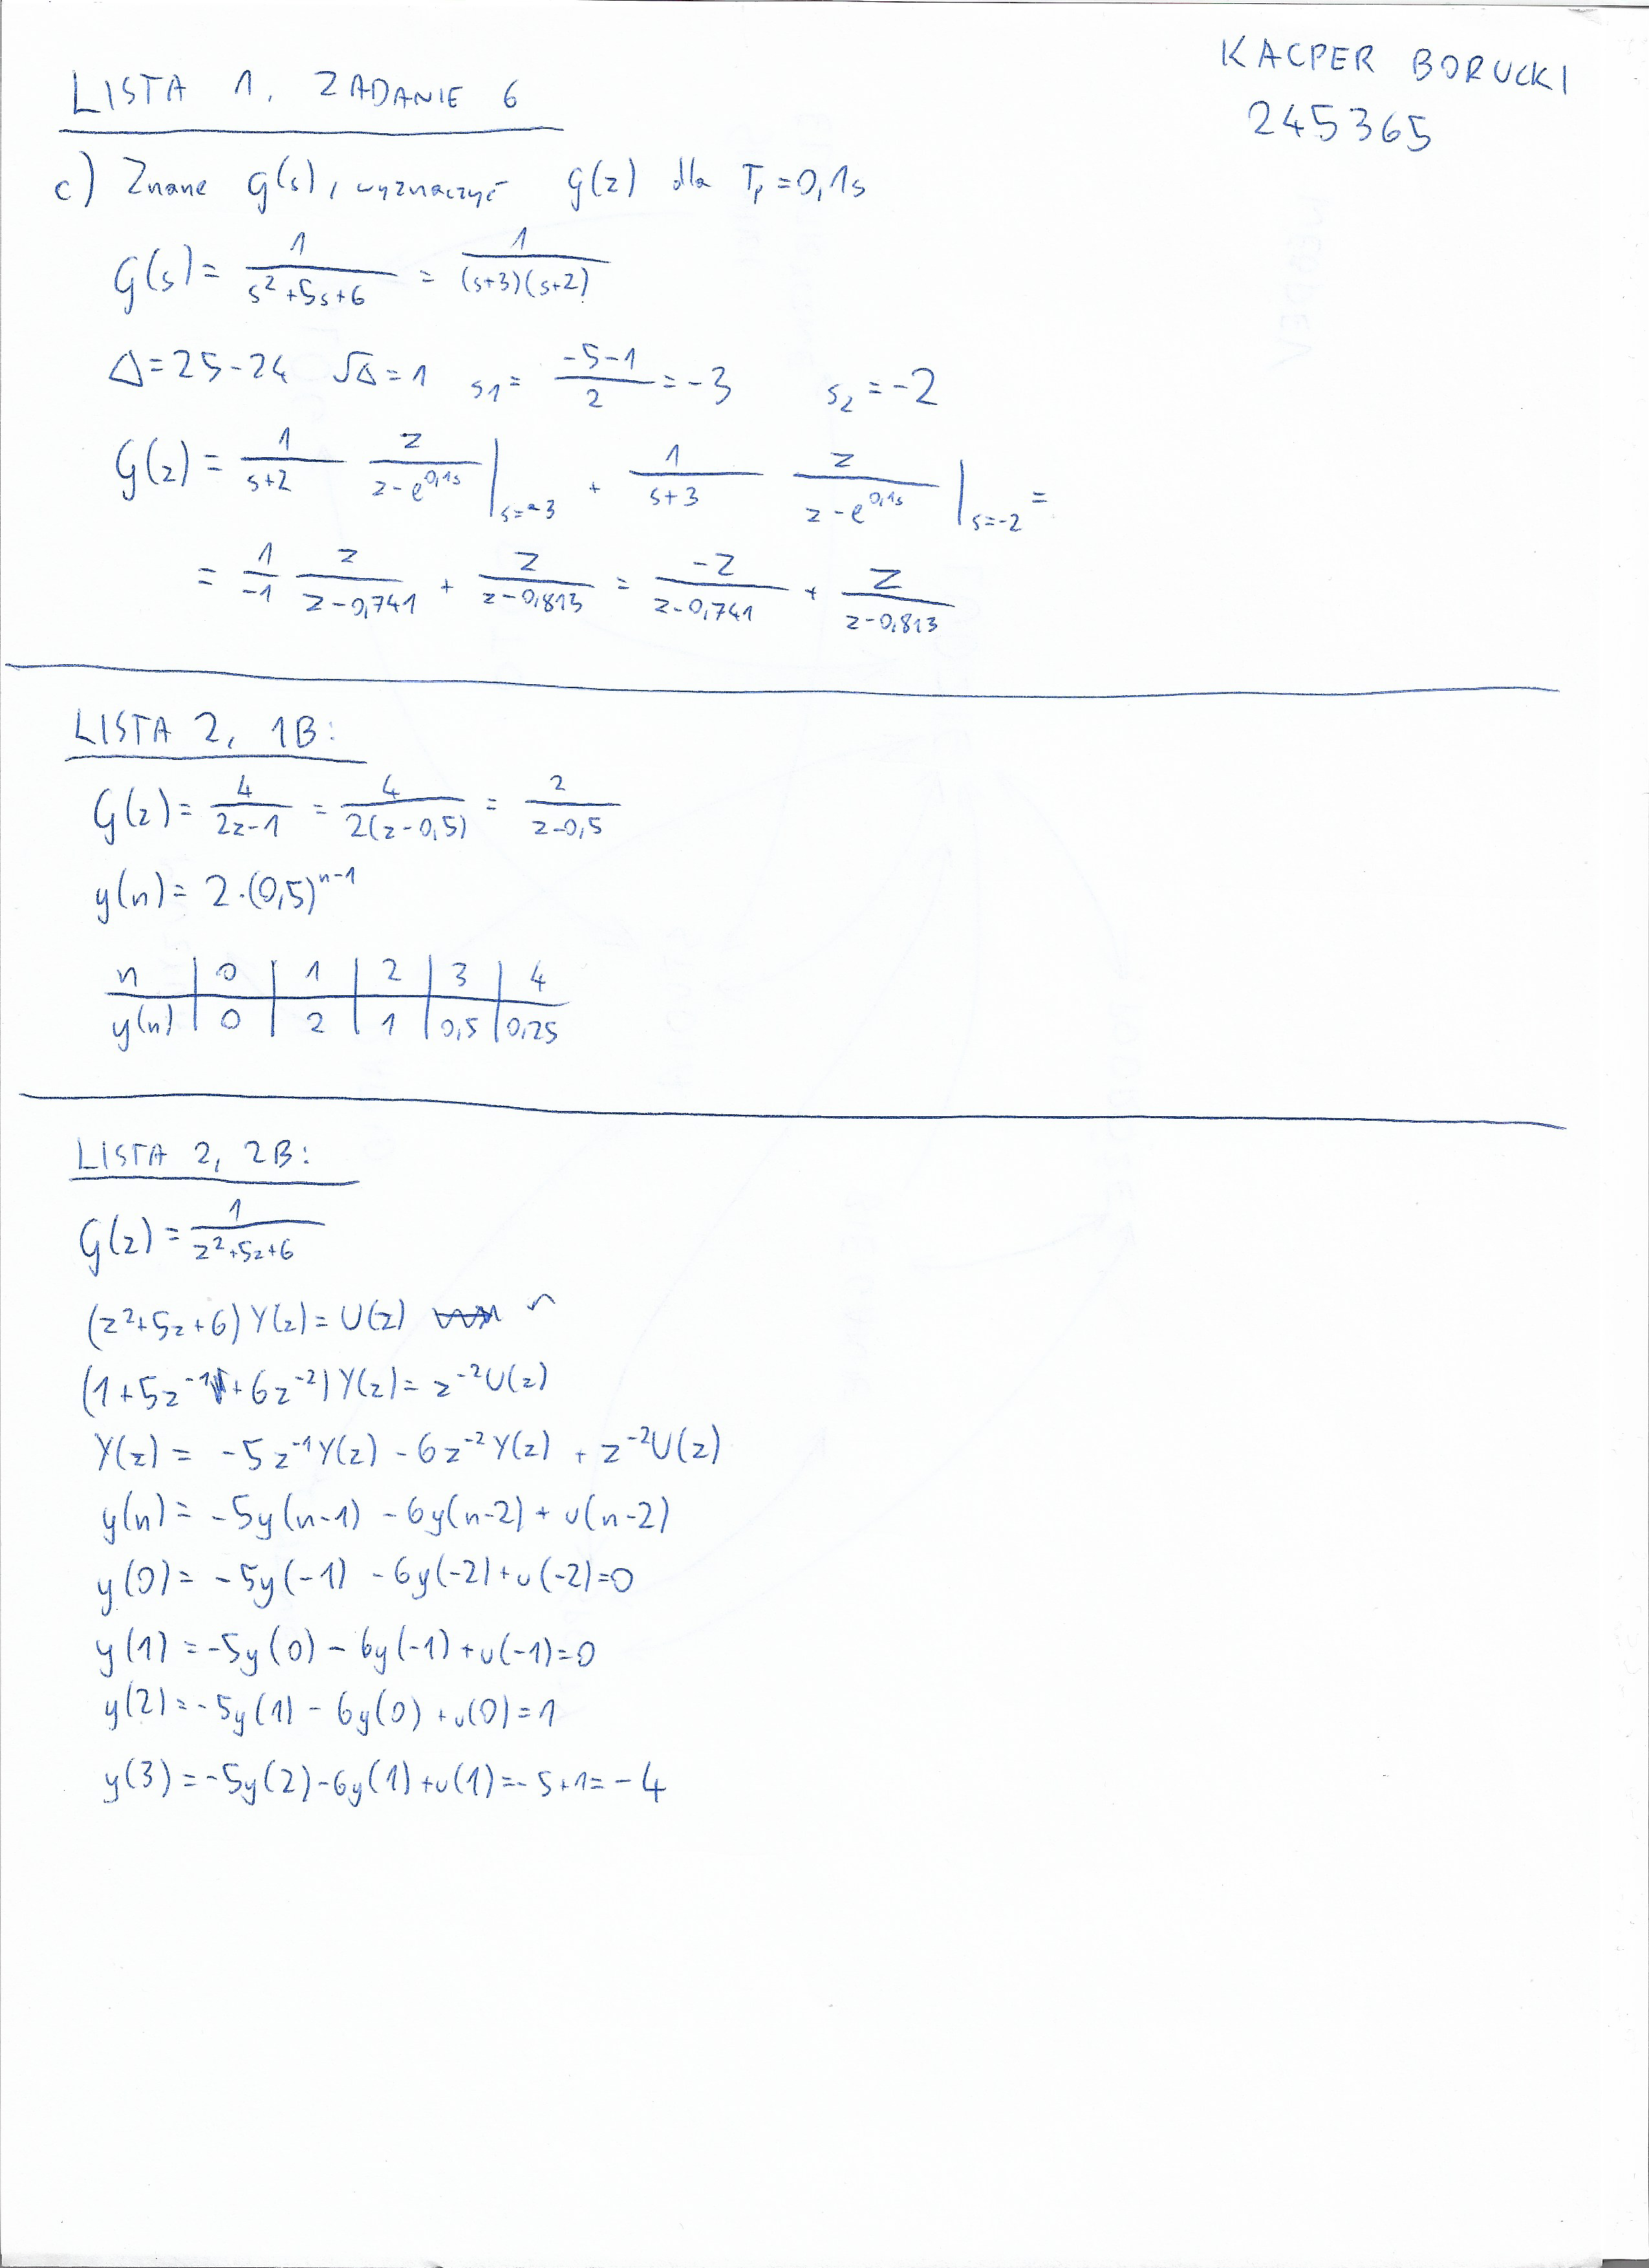 KACPER BORUCKI
245365
LISTA 1, ZADANIE 6
c) Znane G(s), wyznaczyć G(z) dla Tp=0,1s
G(s) = 1/(s²+5s+6) = 1/((s+3)(s+2))
Δ=25-24 √Δ=1 s1= (-5-1)/2 = -3 s2 = -2
G(z) = 1/(s+2) z/(z-e^(0,1s)) |s=-3 + 1/(s+3) z/(z-e^(0,1s)) |s=-2 =
= 1/-1 z/(z-0,741) + z/(z-0,813) = -z/(z-0,741) + z/(z-0,813)
LISTA 2, 1B:
G(z) = 4/(2z-1) = 4/(2(z-0,5)) = 2/(z-0,5)
y(n) = 2·(0,5)^(n-1)
n | 0 | 1 | 2 | 3 | 4
y(n) | 0 | 2 | 1 | 0,5 | 0,25
LISTA 2, 2B:
G(z) = 1/(z²+5z+6)
(z²+5z+6)Y(z) = U(z)
(1+5z⁻¹+6z⁻²)Y(z) = z⁻²U(z)
Y(z) = -5z⁻¹Y(z) - 6z⁻²Y(z) + z⁻²U(z)
y(n) = -5y(n-1) - 6y(n-2) + u(n-2)
y(0) = -5y(-1) - 6y(-2) + u(-2)=0
y(1) = -5y(0) - 6y(-1) + u(-1)=0
y(2) = -5y(1) - 6y(0) + u(0) = 1
y(3) = -5y(2) - 6y(1) + u(1) = -5+1 = -4